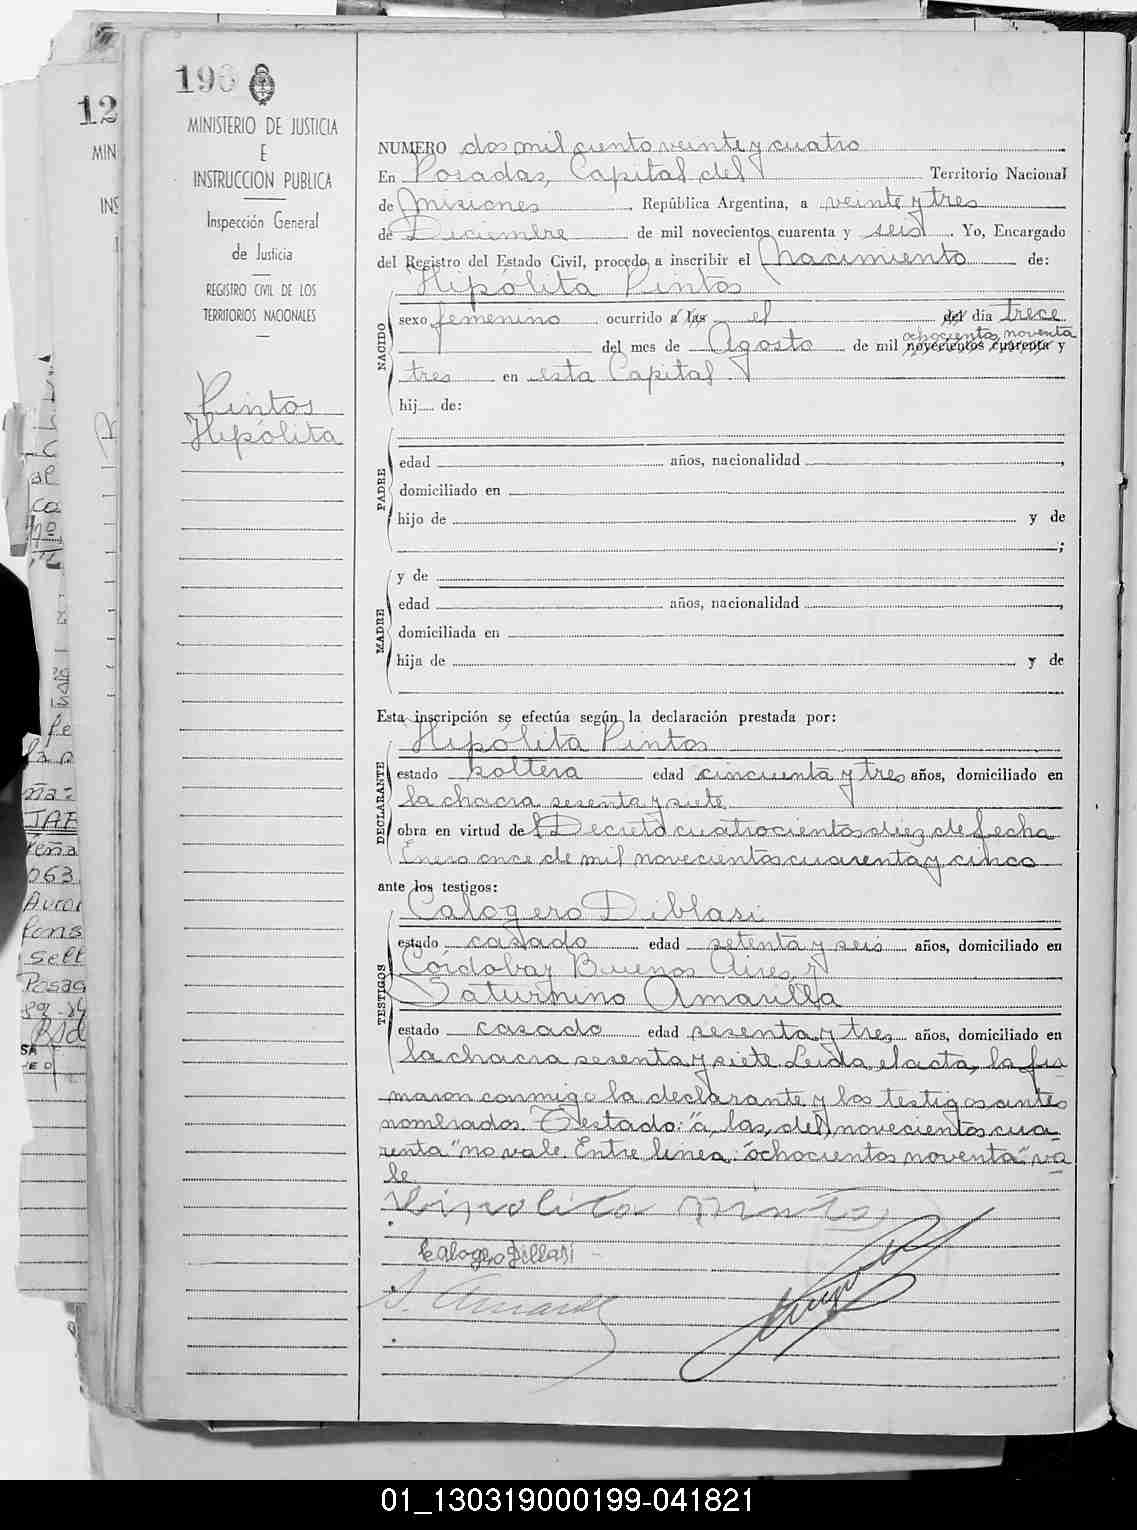 190
MINISTERIO DE JUSTICIA
E
INSTRUCCION PUBLICA
Inspección General
de Justicia
REGISTRO CIVIL DE LOS
TERRITORIOS NACIONALES
Pintos
Hipólita
NUMERO dos mil ciento veinte y cuatro
En Posadas, Capital del Territorio Nacional
de Misiones República Argentina, a veinte y tres
de Diciembre de mil novecientos cuarenta y seis. Yo, Encargado
del Registro del Estado Civil, procedo a inscribir el Nacimiento de:
Hipólita Pintos
NACIDO
sexo femenino ocurrido a las el del dia trece
del mes de Agosto de mil novecientos cuarenta y
ochocientos noventa
tres en esta Capital.
hij de:
PADRE
edad años, nacionalidad ,
domiciliado en
hijo de y de
;
MADRE
y de
edad años, nacionalidad ,
domiciliada en
hija de y de
Esta inscripción se efectúa según la declaración prestada por:
DECLARANTE
Hipólita Pintos
estado soltera edad cincuenta y tres años, domiciliado en
la chacra sesenta y siete
obra en virtud del Decreto cuatrocientos diez de fecha
Enero once de mil novecientos cuarenta y cinco
ante los testigos:
TESTIGOS
Calogero Diblasi
estado casado edad setenta y seis años, domiciliado en
Córdoba y Buenos Aires y
Saturnino Amarilla
estado casado edad sesenta y tres años, domiciliado en
la chacra sesenta y siete. Leida el acta, la fir
maron conmigo la declarante y los testigos antes
nombrados. Testado: "a, las, del, novecientos cua-
renta" no vale. Entre linea: "ochocientos noventa" va
le.
Hipolita Pintos
Calogero Dillasi
S. Amarilla
12
MIN
INS
01_130319000199-041821